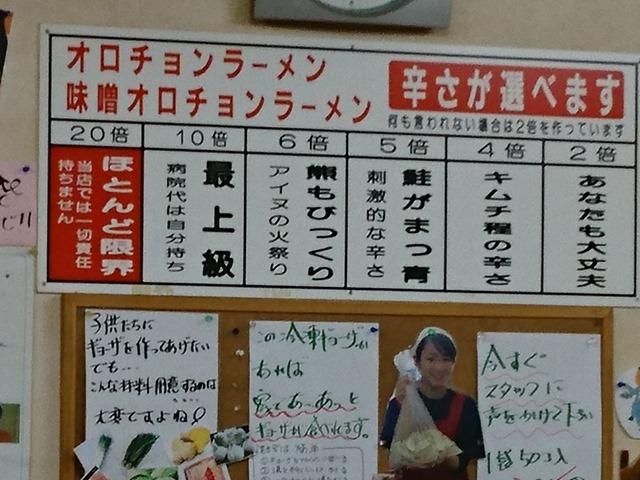 オロチョンラーメン
味噌オロチョンラーメン
辛さが選べます
何も言われない場合は2倍を作っています
20倍
ほとんど限界
当店では一切責任
持ちません
10倍
最上級
病院代は自分持ち
6倍
熊もびっくり
アイヌの火祭り
5倍
鮭がまっ青
刺激的な辛さ
4倍
キムチ程の辛さ
2倍
あなたも大丈夫
子供たちに
ギョーザを作ってあげたい
でも…
こんな材料用意するのは
大変ですよね
この冷凍ギョーザが
あれば
ギョーザが
今すぐ
スタッフに
声をかけて下さい
1袋50コ入